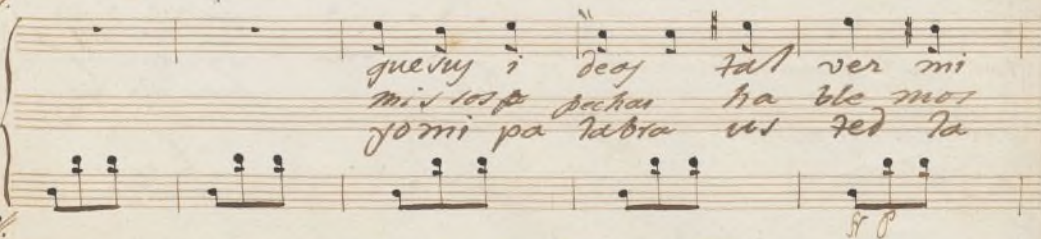 que sus i deas tal vez mi
mis sos pechas ha ble mos
yo mi pa labra us ted la